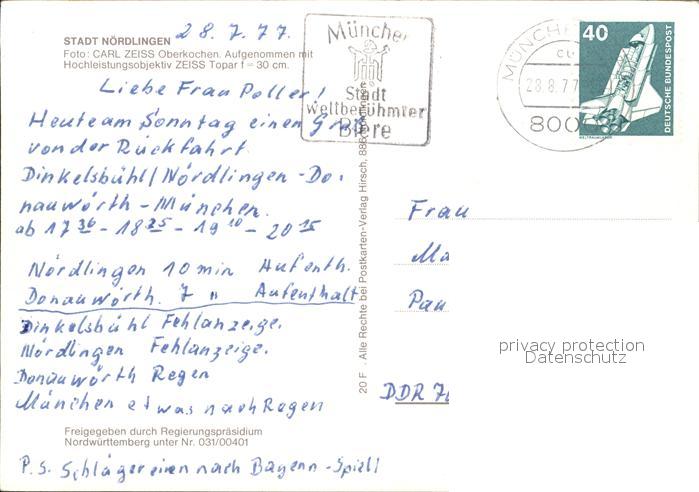 28.7.77.
STADT NÖRDLINGEN
Foto: CARL ZEISS Oberkochen. Aufgenommen mit
Hochleistungsobjektiv ZEISS Topar f = 30 cm.
Liebe Frau Poller!
Heute am Sonntag einen Gruß
von der Rückfahrt
Dinkelsbühl/Nördlingen-Do-
nauwörth-München.
ab 17 36 - 18 25 - 19 10 - 20 15
Nördlingen 10 min Aufenth.
Donauwörth. 7 " Aufenthalt
Dinkelsbühl Fehlanzeige.
Nördlingen Fehlanzeige.
Donauwörth Regen
München etwas nach Regen
Freigegeben durch Regierungspräsidium
Nordwürttemberg unter Nr. 031/00401
P.S. Schlägereien nach Bayern-Spiel!
20 F Alle Rechte bei Postkarten-Verlag Hirsch, 886
München
Stadt
weltberühmter
Biere
MÜNCH
28.8.77
800
40
DEUTSCHE BUNDESPOST
Frau
Ma
Pau
DDR 70
privacy protection
Datenschutz